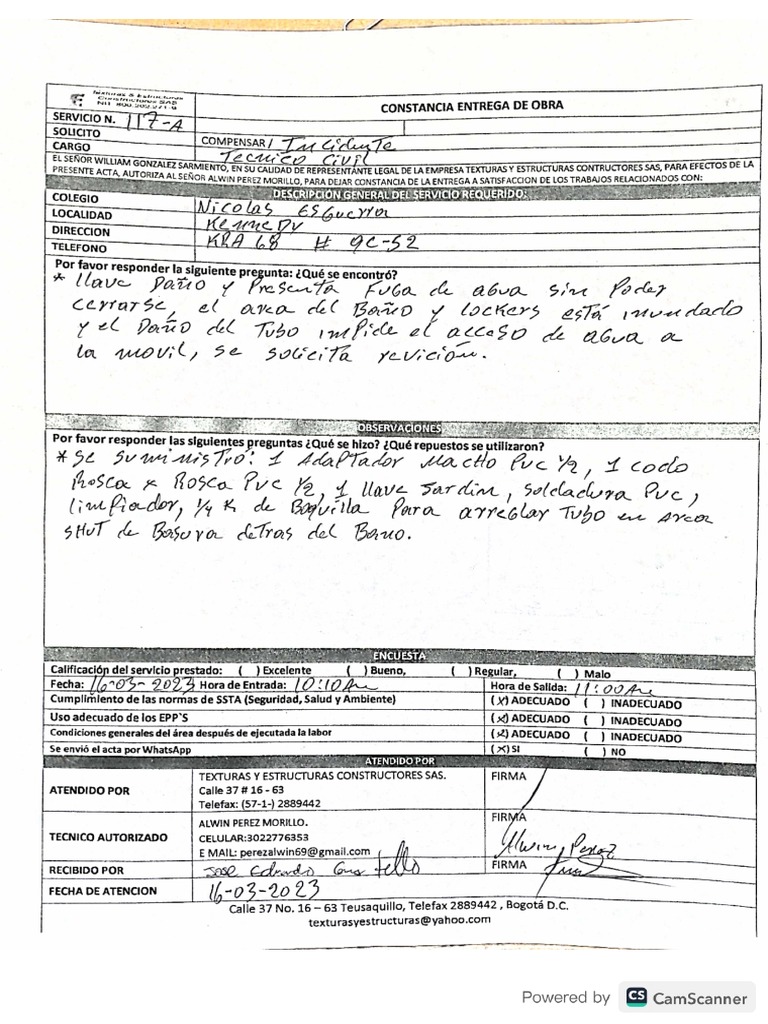 Texturas & Estructuras
Constructores SAS
CONSTANCIA ENTREGA DE OBRA
SERVICIO N. 117-A
SOLICITO COMPENSAR / Incidente
CARGO Tecnico Civil
EL SEÑOR WILLIAM GONZALEZ SARMIENTO, EN SU CALIDAD DE REPRESENTANTE LEGAL DE LA EMPRESA TEXTURAS Y ESTRUCTURAS CONTRUCTORES SAS, PARA EFECTOS DE LA
PRESENTE ACTA, AUTORIZA AL SEÑOR ALWIN PEREZ MORILLO, PARA DEJAR CONSTANCIA DE LA ENTREGA A SATISFACCION DE LOS TRABAJOS RELACIONADOS CON:
DESCRIPCIÓN GENERAL DEL SERVICIO REQUERIDO:
COLEGIO Nicolas Esguerra
LOCALIDAD Kennedy
DIRECCION KRA 68 # 9C-52
TELEFONO
Por favor responder la siguiente pregunta: ¿Qué se encontró?
* llave Daño y Presenta Fuga de agua sin Poder
cerrarse, el area del Baño y lockers está inundado
y el Daño del Tubo impide el acceso de agua a
la movil, se solicita revición.
OBSERVACIONES
Por favor responder las siguientes preguntas ¿Qué se hizo? ¿Qué repuestos se utilizaron?
* Se suministró: 1 Adaptador Macho Pvc 1/2, 1 codo
Rosca x Rosca Pvc 1/2, 1 llave Jardin, Soldadura Pvc,
limpiador, 1/4 K de Boquilla Para arreglar Tubo en Area
SHUT de Basura detras del Bano.
ENCUESTA
Calificación del servicio prestado: ( ) Excelente ( ) Bueno, ( ) Regular, ( ) Malo
Fecha: 16-03-2023 Hora de Entrada: 10:10 Am Hora de Salida: 11:00 Am
Cumplimiento de las normas de SSTA (Seguridad, Salud y Ambiente) (X) ADECUADO ( ) INADECUADO
Uso adecuado de los EPP`S (X) ADECUADO ( ) INADECUADO
Condiciones generales del área después de ejecutada la labor (X) ADECUADO ( ) INADECUADO
Se envió el acta por WhatsApp (X) SI ( ) NO
ATENDIDO POR
ATENDIDO POR TEXTURAS Y ESTRUCTURAS CONSTRUCTORES SAS. FIRMA
Calle 37 # 16 - 63
Telefax: (57-1-) 2889442
TECNICO AUTORIZADO ALWIN PEREZ MORILLO. FIRMA
CELULAR:3022776353 Alwin Perez
E MAIL: perezalwin69@gmail.com
RECIBIDO POR Jose Eduardo FIRMA
FECHA DE ATENCION 16-03-2023
Calle 37 No. 16 – 63 Teusaquillo, Telefax 2889442 , Bogotá D.C.
texturasyestructuras@yahoo.com
Powered by CS CamScanner